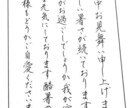 中お見舞い申し上げま
しい暑さが続いております
がお過ごしでしょうか 我が家
元気にしております 酷暑
様もどうかご自愛ください